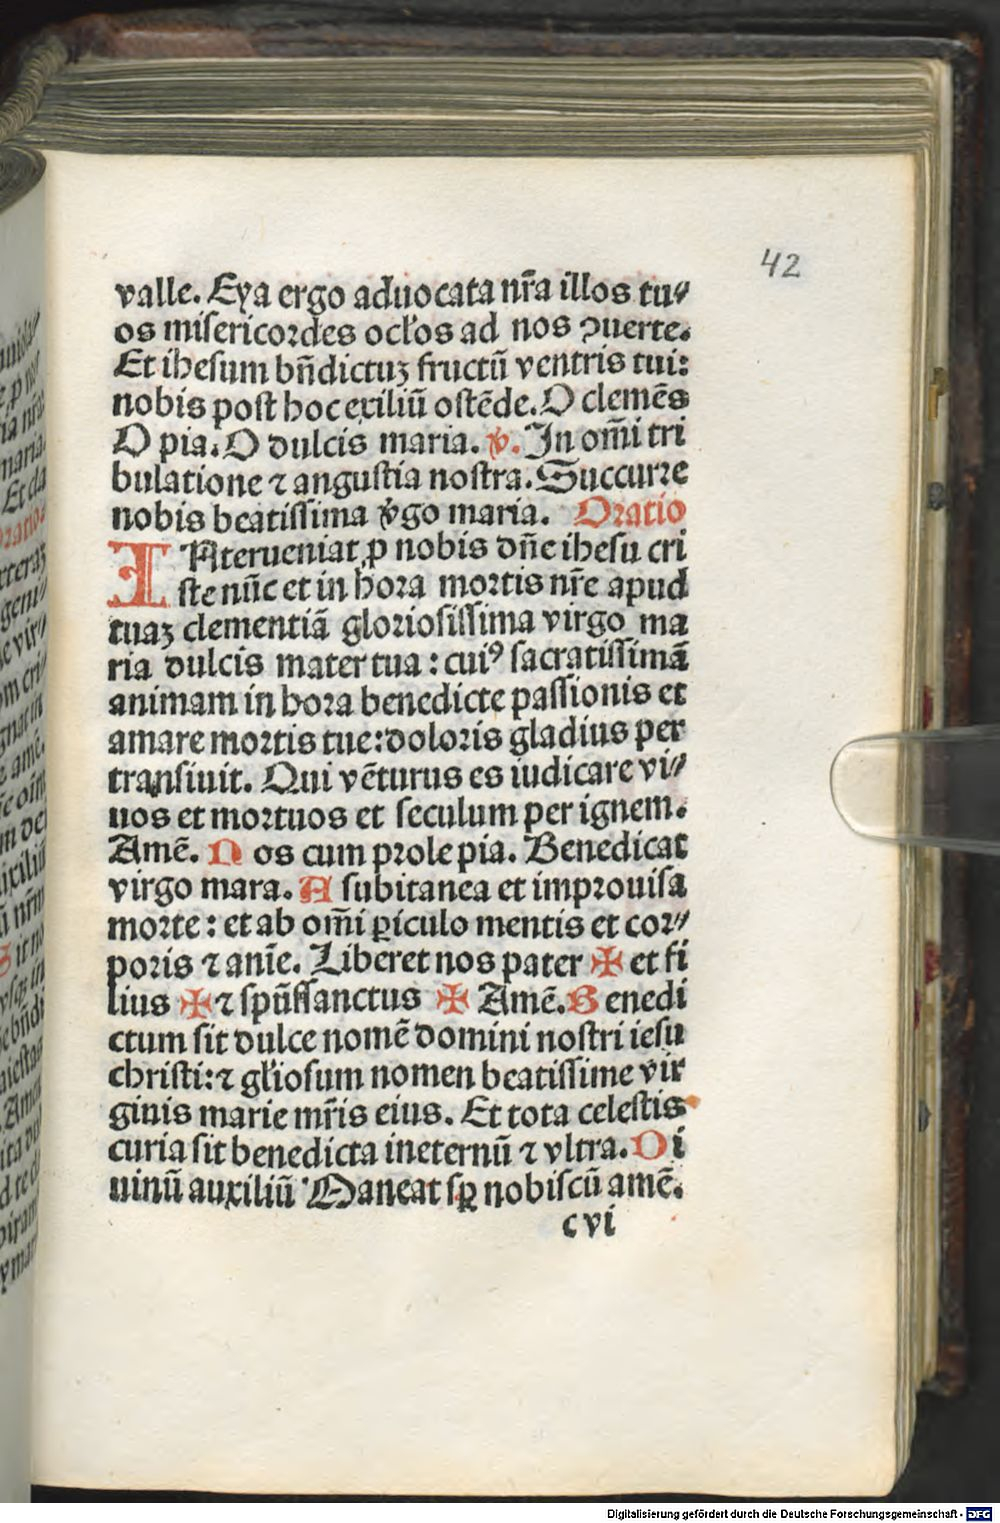 42
valle. Eya ergo aduocata nr̄a illos tu⸗
os misericordes ocl'os ad nos ↄuerte.
Et ihesum bn̄dictuȝ fructū ventris tui:
nobis post hoc exiliū ostēde. O clemēs
O pia. O dulcis maria. ℣. In om̄i tri
bulatione ⁊ angustia nostra. Succurre
nobis beatissima v̓go maria. Oratio
INterueniat ꝓ nobis dn̄e ihesu cri
ste nūc et in hora mortis nr̄e apud
tuaȝ clementiā gloriosissima virgo ma
ria dulcis mater tua : cuiꝰ sacratissimā
animam in hora benedicte passionis et
amare mortis tue: doloris gladius per
transiuit. Qui vēturus es iudicare vi⸗
uos et mortuos et seculum per ignem.
Amē. Nos cum prole pia. Benedicat
virgo mara. A subitanea et improuisa
morte : et ab om̄i ꝑiculo mentis et cor⸗
poris ⁊ anīe. Liberet nos pater ✠ et fi
lius ✠ ⁊ spūssanctus ✠ Amē. Benedi
ctum sit dulce nomē domini nostri iesu
christi: ⁊ gl'iosum nomen beatissime vir
ginis marie mr̄is eius. Et tota celestis
curia sit benedicta in eternū ⁊ vltra. Di
uinū auxiliū Maneat sꝑ nobiscū amē.
c vi
Digitalisierung gefördert durch die Deutsche Forschungsgemeinschaft - DFG